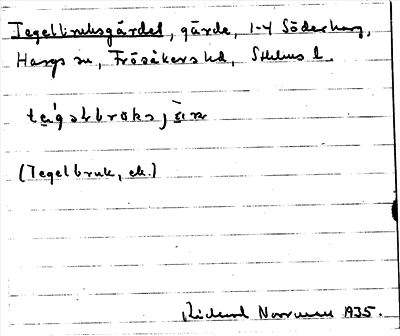 Tegelbruksgärdet, gärde, 1-4 Söderharg,
Hargs sn, Frösåkers hd, Sthlms l.
(Tegelbruk, ek.)
Rickard Norrman 1935.